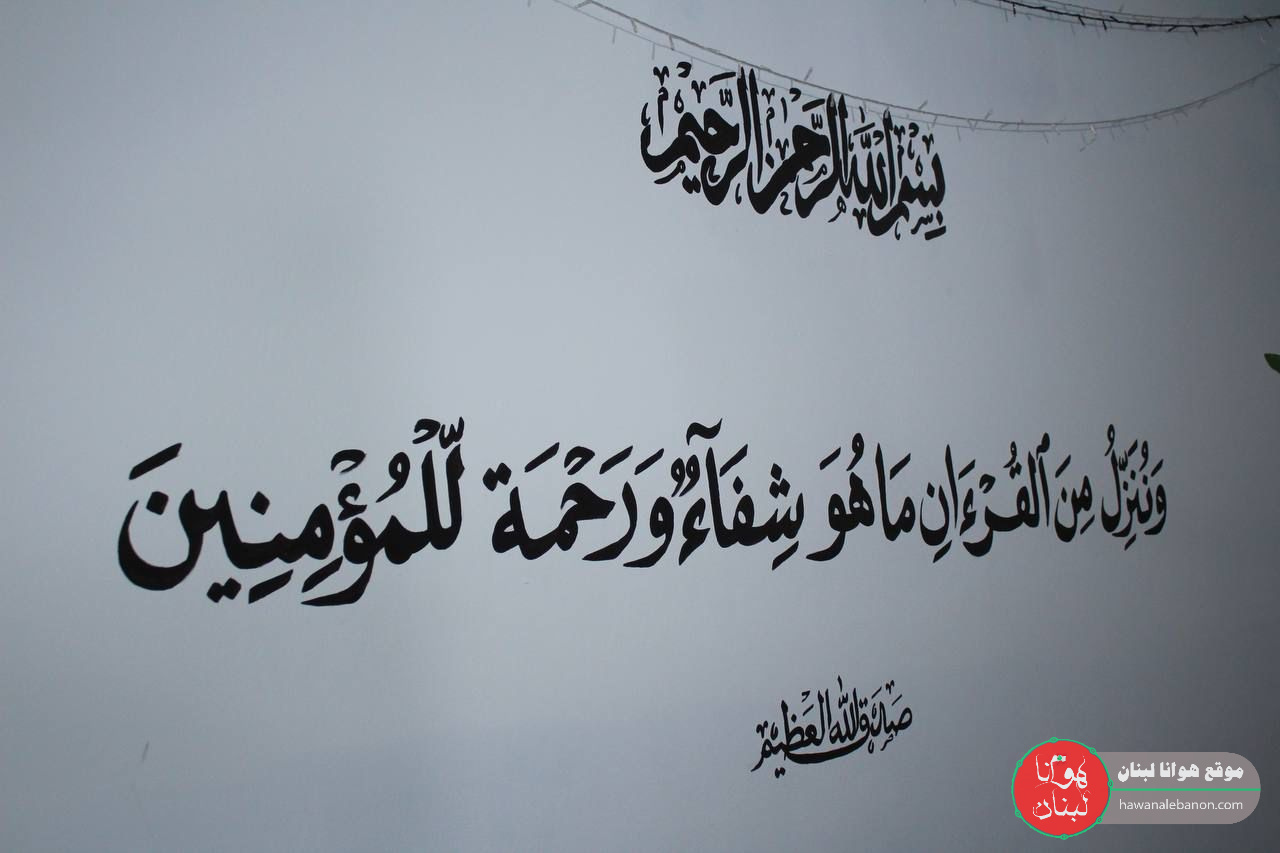 بِسْمِ اللَّهِ الرَّحْمَنِ الرَّحِيمِ
وَنُنَزِّلُ مِنَ ٱلْقُرْءَانِ مَا هُوَ شِفَآءٌ وَرَحْمَة لِّلْمُؤْمِنِينَ
صَدَقَ اللَّه العَظِيم
هوانا لبنان
موقع هوانا لبنان
hawanalebanon.com